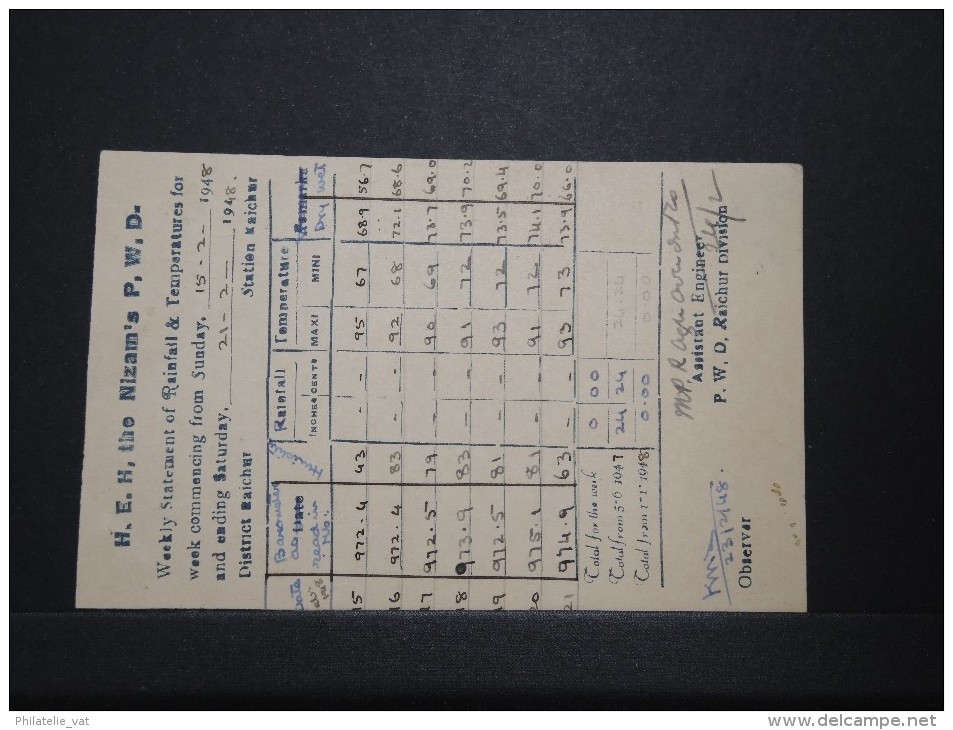 H. E. H, the Nizam's P. W. D.
Weekly Statement of Rainfall & Temperatures for
week commencing from Sunday, 15-2- 1948
and ending Saturday, 21-2- 1948.
District Raichur Station Raichur
Date Barometer as read in Mb: Humidity Rainfall Temperature Remarks
INCHES CENTS MAXI MINI Dry Wet
15 972.4 43 - - 95 67 68.9 56.7
16 972.4 83 - - 92 68 72.1 68.6
17 972.5 79 - - 90 69 73.7 69.0
18 973.9 83 - - 91 72 73.9 70.2
19 972.5 81 - - 93 72 73.5 69.4
20 975.1 81 - - 91 72 74.1 70.0
21 974.9 63 - - 93 73 73.9 66.0
Total for the week 0 00
Total from 5-6 1947 24 24 24.24
Total from 1-1-1948 0.00 0.00
23/2/48.
Observer
Assistant Engineer
P. W. D, Raichur Division
24/2
Philatelie_vat
delcampe.net